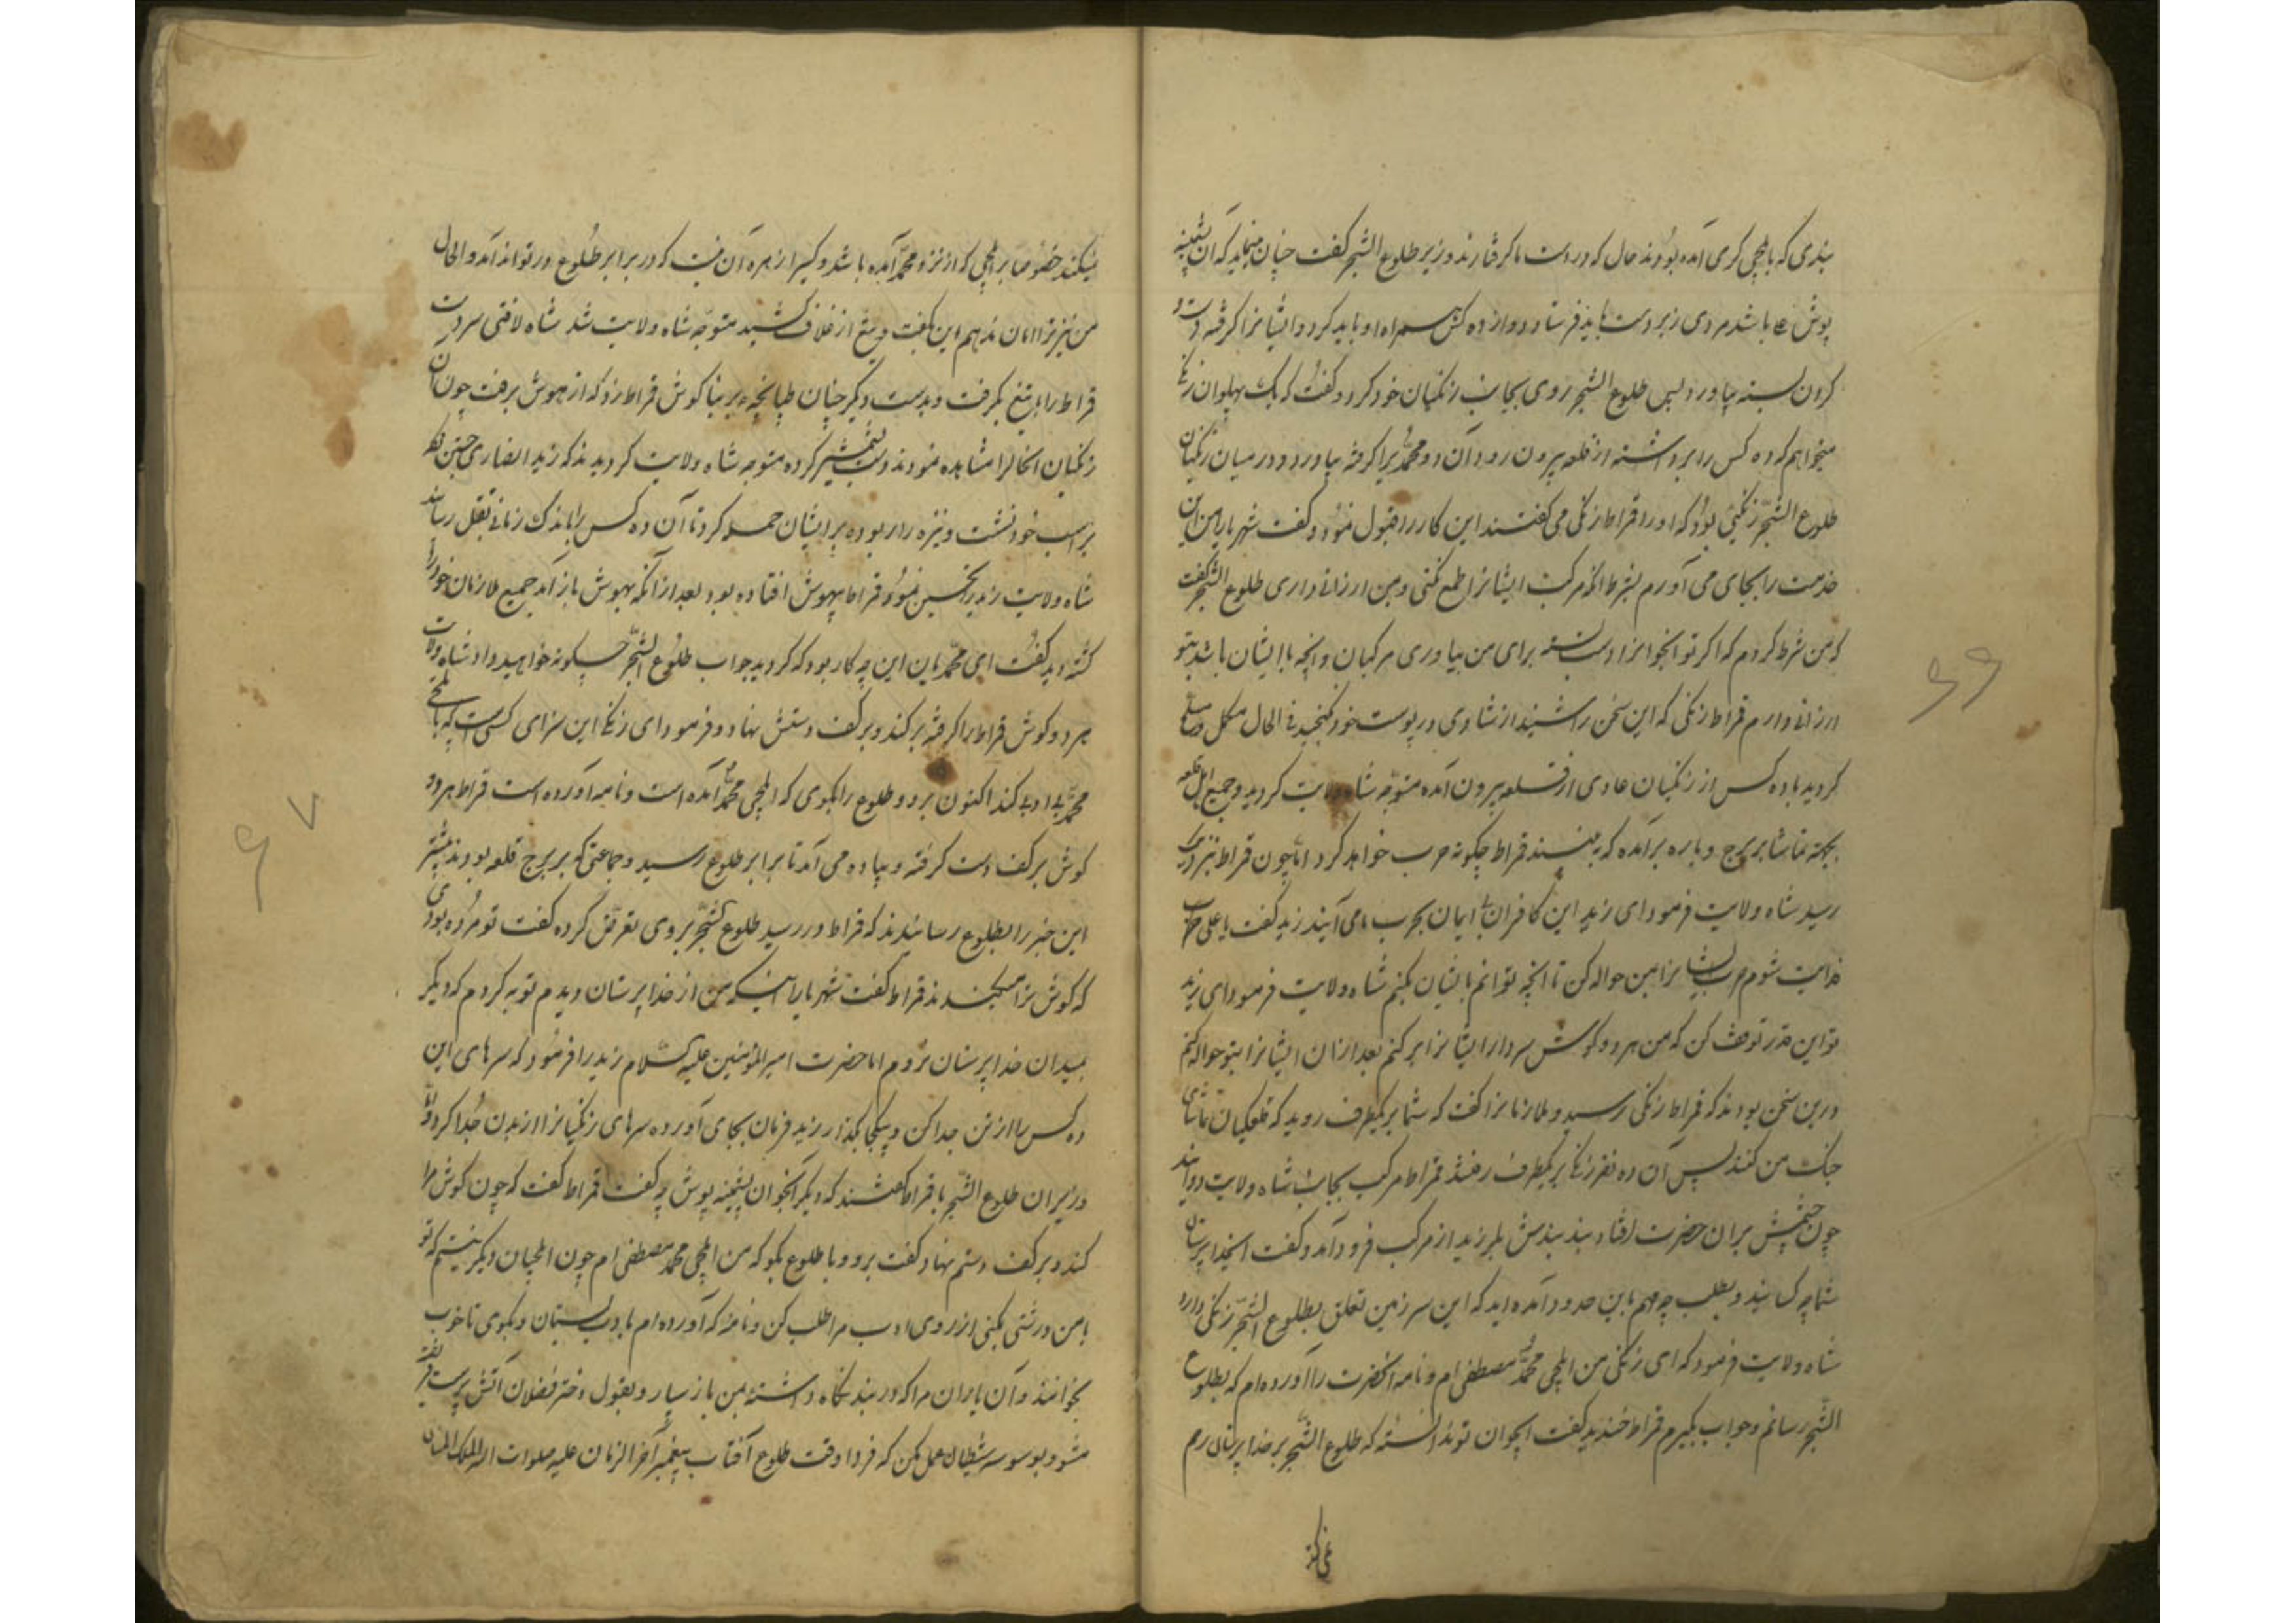 بندی که بایلچی کری آمده بودند حال که در دست ما کرفتارند وزیر طلوع الشجر کفت چنان مینماید که آن پشمینه
پوش باشد مردی زبردست باید فرستاد و دوازده کس همراه او باید کرد و ایشانرا کرفته دست و
کردن بسته بیاورد پس طلوع الشجر روی بجانب زنکیان خود کرد و کفت که یک پهلوان زنکی
میخواهم که ده کس را برداشته از قلعه بیرون رود آن دو محمدیرا کرفته بیاورد و در میان زنکیان
طلوع الشجر زنکیی بود که او را قراط زنکی می کفتند این کار را قبول نمود و کفت شهریارا من این
خدمت را بجای می آورم بشرط آنکه مرکب ایشانرا طمع نکنی و بمن ارزانی داری طلوع الشجر کفت
که من شرط کردم که اکر تو آنجوانرا دست بسته برای من بیاوری مرکبان و آنچه با ایشان باشد بتو
ارزانی دارم قراط زنکی که این سخن را شنید از شادی در پوست خود نکنجید فی الحال مکمل و مسلح
کردید با ده کس از زنکیان عادی از قلعه بیرون آمده متوجه شاه ولایت کردید و جمیع اهل قلعه
بجهة تماشا بر برج و باره برآمده که به بینند قراط چکونه حرب خواهد کرد اما چون قراط نزدیک
رسید شاه ولایت فرمود ای زید این کافران بی ایمان بحرب ما می آیند زید کفت یا علی
فدایت شوم حرب ایشانرا بمن حواله کن تا آنچه توانم بایشان بکنم شاه ولایت فرمود ای زید
تو این قدر توقف کن که من هر دو کوش سردار ایشانرا برکنم بعد از ان ایشانرا بتو حواله کنم
درین سخن بودند که قراط زنکی رسید و ملازمانرا کفت که شما بریکطرف روید که قلعکیان تماشای
جنک من کنند پس آن ده نفر زنکی بریکطرف رفتند قراط مرکب بجانب شاه ولایت دوانید
چون چشمش بران حضرت افتاد بند بندش بلرزید از مرکب فرود آمد و کفت ایخداپرستان
شما چه کسانید و بطلب چه مهم باین حدود آمده اید که این سرزمین تعلق بطلوع الشجر زنکی دارد
شاه ولایت فرمود که ای زنکی من ایلچی محمد مصطفی ام و نامه آنحضرت را آورده ام که بطلوع
الشجر رسانم و جواب بکیرم قراط خندید کفت ایجوان تو ندانسته که طلوع الشجر بر خداپرستان رحم
نمی کند
نمیکند خصوصا بر ایلچی که از نزد محمد آمده باشد و کسیرا زهره آن نیست که در برابر طلوع در تواند آمد و الحال
من نیز ترا امان ندهم این بکفت و تیغ از غلاف کشید متوجه شاه ولایت شد شاه لافتی سر دست
قراط را با تیغ بکرفت و بدست دیکر چنان طپانچه بر بناکوش قراط زد که از هوش برفت چون آن
زنکیان آنحالرا مشاهده نمودند دست بشمشیر کرده متوجه شاه ولایت کردیدند که زید انصاری
بر اسب خود نشست و نیزه را ربوده بر ایشان حمله کرد تا آن ده کس را باندک زمانی بقتل رسانید
شاه ولایت زید را تحسین نمود و قراط بیهوش افتاده بود بعد از آنکه بهوش باز آمد جمیع ملازمان خود را
کشته دید کفت ای محمدیان این چه کار بود که کردید جواب طلوع الشجر چکونه خواهید داد شاه ولایت
هر دو کوش قراط را کرفته برکند و بر کف دستش نهاد و فرمود ای زنکی این سزای کسی است که با ایلچی
محمد بی ادبی کند اکنون برو و طلوع را بکوی که ایلچی محمد آمده است و نامه آورده است قراط هر دو
کوش بر کف دست کرفته و پیاده می آمد تا برابر طلوع رسید و جماعتی که بر برج قلعه بودند پیشتر
این خبر را بطلوع رسانیدند که قراط در رسید طلوع الشجر بر وی تعرض کرده کفت تو مرده بودی
که کوش ترا میکندند قراط کفت شهریارا اینکه من از خداپرستان دیدم توبه کردم که دیکر
بمیدان خداپرستان نروم اما حضرت امیرالمؤمنین علیه السلام زید را فرمود که سرهای این
ده کس را از تن جدا کن و بیکجا بکذار زید فرمان بجای آورده سرهای زنکیانرا از بدن جدا کرد و اما
وزیران طلوع الشجر با قراط کفتند که دیکر آنجوان پشمینه پوش چه کفت قراط کفت که چون کوش مرا
کند و بر کف دستم نهاد کفت برو و با طلوع بکو که من ایلچی محمد مصطفی ام چون ایلچیان دیکر نیستم که تو
با من درشتی بکنی از روی ادب مرا طلب کن و نامه که آورده ام بادب بستان و بکوی تا خوب
بخوانند و آن یاران مرا که در بند نکاه داشتهٔ بمن باز سپار و بقول دختر فضلان آتش پرست فریفته
مشو و بوسوسه شیطان عمل مکن که فردا وقت طلوع آفتاب پیغمبر آخر الزمان علیه صلوات الله الملک المنان
۶۶
۶۷